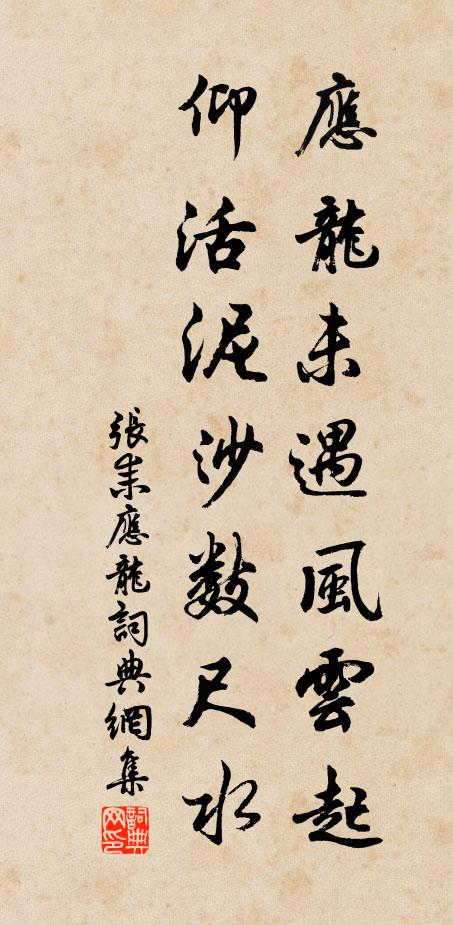 應龍未遇風雲起
仰活泥沙數尺水
張耒應龍詞典網集
詞典网印